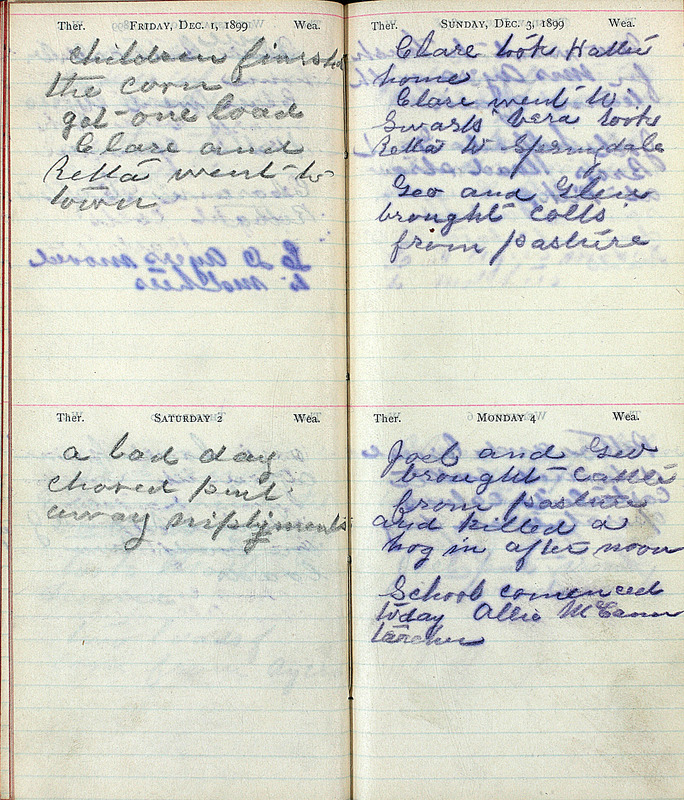 Ther. Friday, Dec. 1, 1899 Wea.
children finished
the corn
got one load
Clare and
Retta went to
town
Ther. Saturday 2 Wea.
a bad day
chored put
away
Ther. Sunday, Dec. 3, 1899 Wea.
Clare took Hattie
home
Clare went to
Swarts Vera took
Retta to Springdale
Geo and Glen
brought colts
from pasture
Ther. Monday 4 Wea.
Joel and Geo
brought cattle
from pasture
and killed a
hog in after noon
School comenced
today Allie McCann
teacher